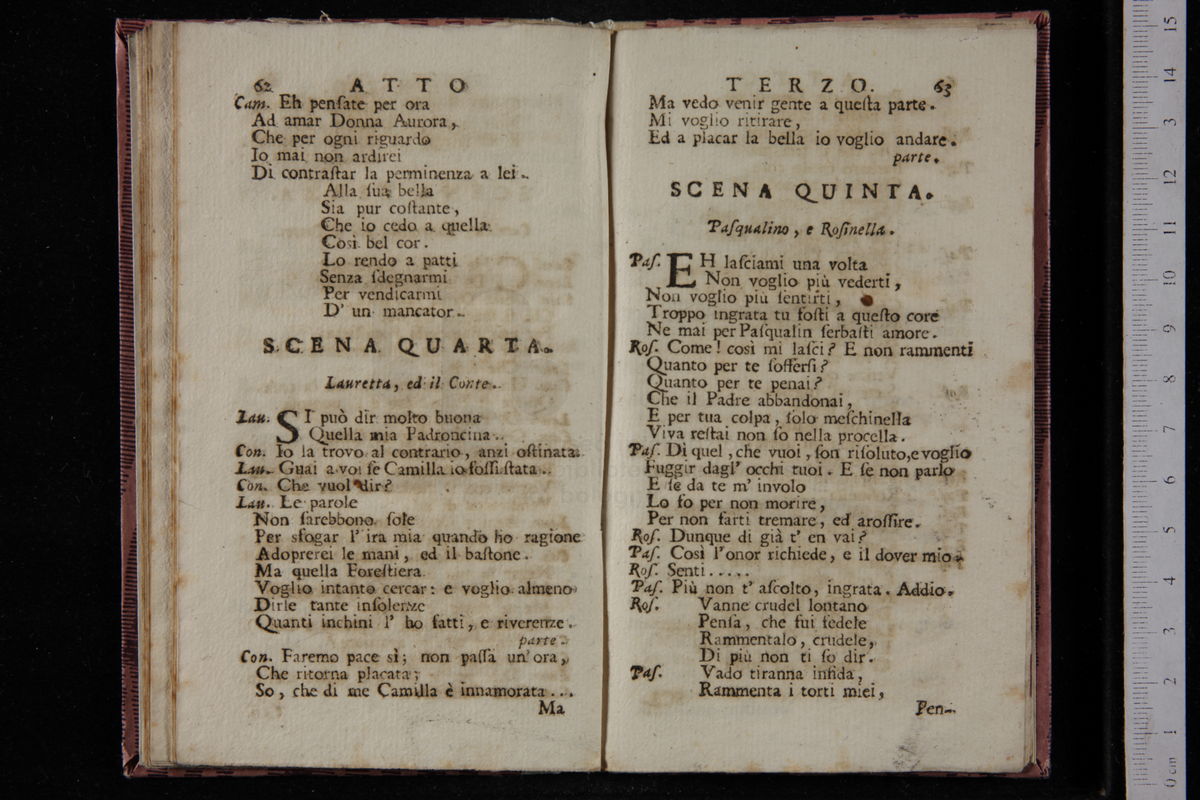 62 ATTO
Cam. Eh penſate per ora
Ad amar Donna Aurora,
Che per ogni riguardo
Io mai non ardirei
Di contraſtar la perminenza a lei.
Alla ſua bella
Sia pur coſtante,
Che io cedo a quella
Così bel cor.
Lo rendo a patti
Senza ſdegnarmi
Per vendicarmi
D' un mancator.
SCENA QUARTA.
Lauretta, ed il Conte.
Lau. SI può dir molto buona
Quella mia Padroncina.
Con. Io la trovo al contrario, anzi oſtinata.
Lau. Guai a voi ſe Camilla io foſſi ſtata.
Con. Che vuol dir?
Lau. Le parole
Non ſarebbono ſole
Per sfogar l'ira mia quando ho ragione
Adoprerei le mani, ed il baſtone.
Ma quella Foreſtiera
Voglio intanto cercar: e voglio almeno
Dirle tante inſolenze
Quanti inchini l' ho fatti, e riverenze.
parte.
Con. Faremo pace sì; non paſſa un' ora,
Che ritorna placata;
So, che di me Camilla è innamorata...
Ma
TERZO. 63
Ma vedo venir gente a queſta parte.
Mi voglio ritirare,
Ed a placar la bella io voglio andare.
parte.
SCENA QUINTA.
Paſqualino, e Roſinella.
Paſ. EH laſciami una volta
Non voglio più vederti,
Non voglio più ſentirti,
Troppo ingrata tu foſti a queſto core
Ne mai per Paſqualin ſerbaſti amore.
Roſ. Come! così mi laſci? E non rammenti
Quanto per te ſofferſi?
Quanto per te penai?
Che il Padre abbandonai,
E per tua colpa, ſolo meſchinella
Viva reſtai non ſo nella procella.
Paſ. Di quel, che vuoi, ſon riſoluto, e voglio
Fuggir dagl' occhi tuoi. E ſe non parlo
E ſe da te m' involo
Lo fo per non morire,
Per non farti tremare, ed aroſſire.
Roſ. Dunque di già t' en vai?
Paſ. Così l'onor richiede, e il dover mio.
Roſ. Senti.....
Paſ. Più non t' aſcolto, ingrata. Addio.
Roſ. Vanne crudel lontano
Penſa, che fui fedele
Rammentalo, crudele,
Di più non ti ſo dir.
Paſ. Vado tiranna infida,
Rammenta i torti miei,
Pen-
0 cm 1 2 3 4 5 6 7 8 9 10 11 12 3 14 15